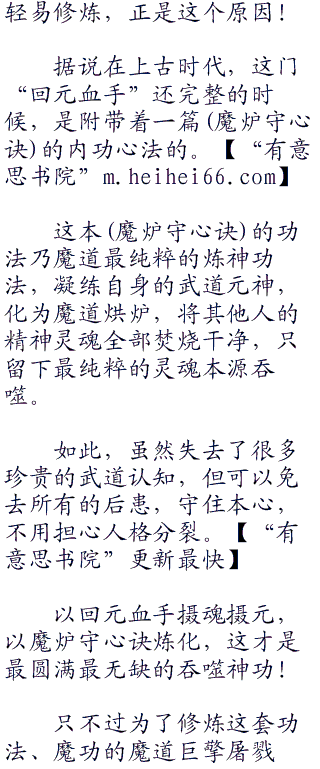 轻易修炼，正是这个原因！
据说在上古时代，这门
“回元血手”还完整的时
候，是附带着一篇(魔炉守心
诀)的内功心法的。【“有意
思书院”m.heihei66.com】
这本(魔炉守心诀)的功
法乃魔道最纯粹的炼神功
法，凝练自身的武道元神，
化为魔道烘炉，将其他人的
精神灵魂全部焚烧干净，只
留下最纯粹的灵魂本源吞
噬。
如此，虽然失去了很多
珍贵的武道认知，但可以免
去所有的后患，守住本心，
不用担心人格分裂。【“有
意思书院”更新最快】
以回元血手摄魂摄元，
以魔炉守心诀炼化，这才是
最圆满最无缺的吞噬神功！
只不过为了修炼这套功
法、魔功的魔道巨擎屠戮